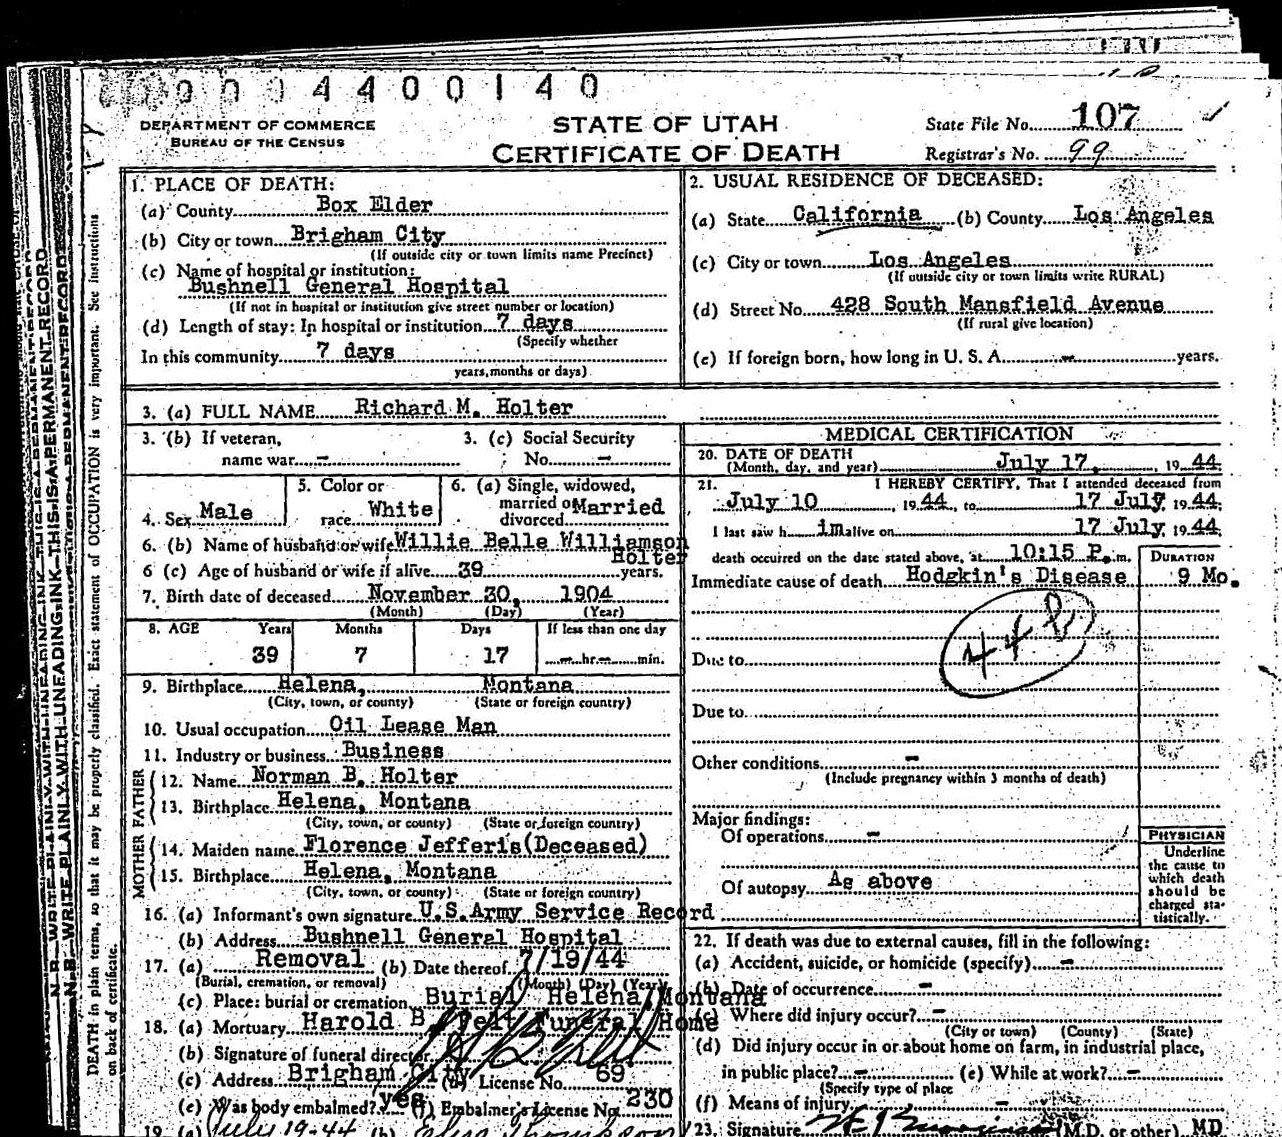 0004400140
DEPARTMENT OF COMMERCE
BUREAU OF THE CENSUS
STATE OF UTAH
CERTIFICATE OF DEATH
State File No. 107
Registrar's No. 99
1. PLACE OF DEATH:
(a) County Box Elder
(b) City or town Brigham City
(If outside city or town limits name Precinct)
(c) Name of hospital or institution:
Bushnell General Hospital
(If not in hospital or institution give street number or location)
(d) Length of stay: In hospital or institution 7 days
(Specify whether
In this community 7 days
years, months or days)
2. USUAL RESIDENCE OF DECEASED:
(a) State California (b) County Los Angeles
(c) City or town Los Angeles
(If outside city or town limits write RURAL)
(d) Street No. 428 South Mansfield Avenue
(If rural give location)
(e) If foreign born, how long in U. S. A. - years.
3. (a) FULL NAME Richard M. Holter
3. (b) If veteran, name war -
3. (c) Social Security No. -
4. Sex Male
5. Color or race White
6. (a) Single, widowed, married or divorced Married
6. (b) Name of husband or wife Willie Belle Williamson Holter
6 (c) Age of husband or wife if alive 39 years.
7. Birth date of deceased November 30, 1904
(Month) (Day) (Year)
8. AGE Years Months Days If less than one day
39 7 17 - hr. - min.
9. Birthplace Helena, Montana
(City, town, or county) (State or foreign country)
10. Usual occupation Oil Lease Man
11. Industry or business Business
FATHER
12. Name Norman B. Holter
13. Birthplace Helena, Montana
(City, town, or county) (State or foreign country)
MOTHER
14. Maiden name Florence Jefferis (Deceased)
15. Birthplace Helena, Montana
(City, town, or county) (State or foreign country)
16. (a) Informant's own signature U.S. Army Service Record
(b) Address Bushnell General Hospital
17. (a) Removal (b) Date thereof 7/19/44
(Burial, cremation, or removal) (Month) (Day) (Year)
(c) Place: burial or cremation Burial Helena, Montana
18. (a) Mortuary Harold B. Felt Funeral Home
(b) Signature of funeral director
(c) Address Brigham City (d) License No. 69
(e) Was body embalmed? yes (f) Embalmer's License No. 230
19. (a) July 19-44 (b)
MEDICAL CERTIFICATION
20. DATE OF DEATH
(Month, day, and year) July 17, 1944
21. I HEREBY CERTIFY, That I attended deceased from
July 10, 1944, to 17 July, 1944.
I last saw him alive on 17 July, 1944.
death occurred on the date stated above, at 10:15 P. m.
DURATION
Immediate cause of death Hodgkin's Disease 9 Mo.
44b
Due to
Due to
Other conditions -
(Include pregnancy within 3 months of death)
Major findings:
Of operations -
Of autopsy As above
PHYSICIAN
Underline
the cause to
which death
should be
charged sta-
tistically.
22. If death was due to external causes, fill in the following:
(a) Accident, suicide, or homicide (specify) -
(b) Date of occurrence -
(c) Where did injury occur? -
(City or town) (County) (State)
(d) Did injury occur in or about home on farm, in industrial place,
in public place? - (e) While at work? -
(Specify type of place
(f) Means of injury -
23. Signature (M.D. or other) MD
N. B. WRITE PLAINLY WITH UNFADING INK - THIS IS A PERMANENT RECORD
DEATH in plain terms, so that it may be properly classified. Exact statement of OCCUPATION is very important. See instructions
on back of certificate.